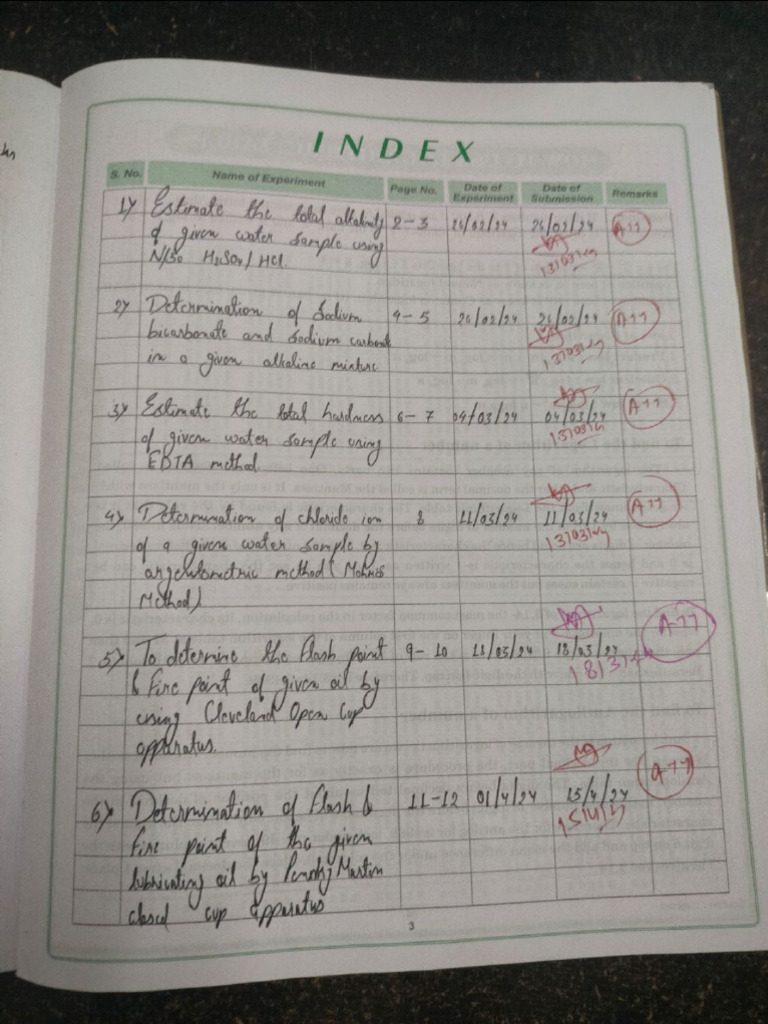 INDEX
S. No. Name of Experiment Page No. Date of Experiment Date of Submission Remarks
1) Estimate the total alkalinity 2-3 26/02/24 26/02/24
of given water sample using
N/50 H2SO4/HCl.
13/03/24
2) Determination of Sodium 4-5 26/02/24 26/02/24
bicarbonate and sodium carbonate
in a given alkaline mixture
13/03/24
3) Estimate the total hardness 6-7 04/03/24 04/03/24
of given water sample using
13/03/24
EDTA method
4) Determination of chloride ion 8 11/03/24 11/03/24
of a given water sample by
13/03/24
argentometric method (Mohr's
Method)
5) To determine the flash point 9-10 18/03/24 18/03/24
& Fire point of given oil by
18/3/24
using Cleveland Open Cup
apparatus.
6) Determination of flash & 11-12 01/4/24 15/4/24
fire point of the given
15/4/24
lubricating oil by Martin
closed cup apparatus
3